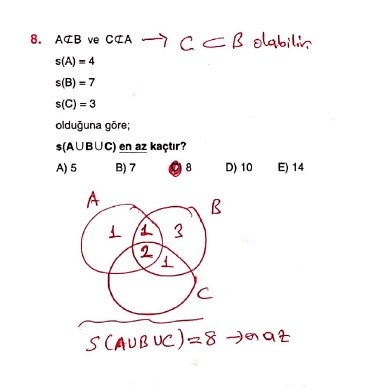 8. A⊄B ve C⊄A → C ⊂ B olabilir
s(A) = 4
s(B) = 7
s(C) = 3
olduğuna göre;
s(A∪B∪C) en az kaçtır?
A) 5 B) 7 C) 8 D) 10 E) 14
A
B
1 1 3
2 1
C
S(A∪B∪C)=8 → en az